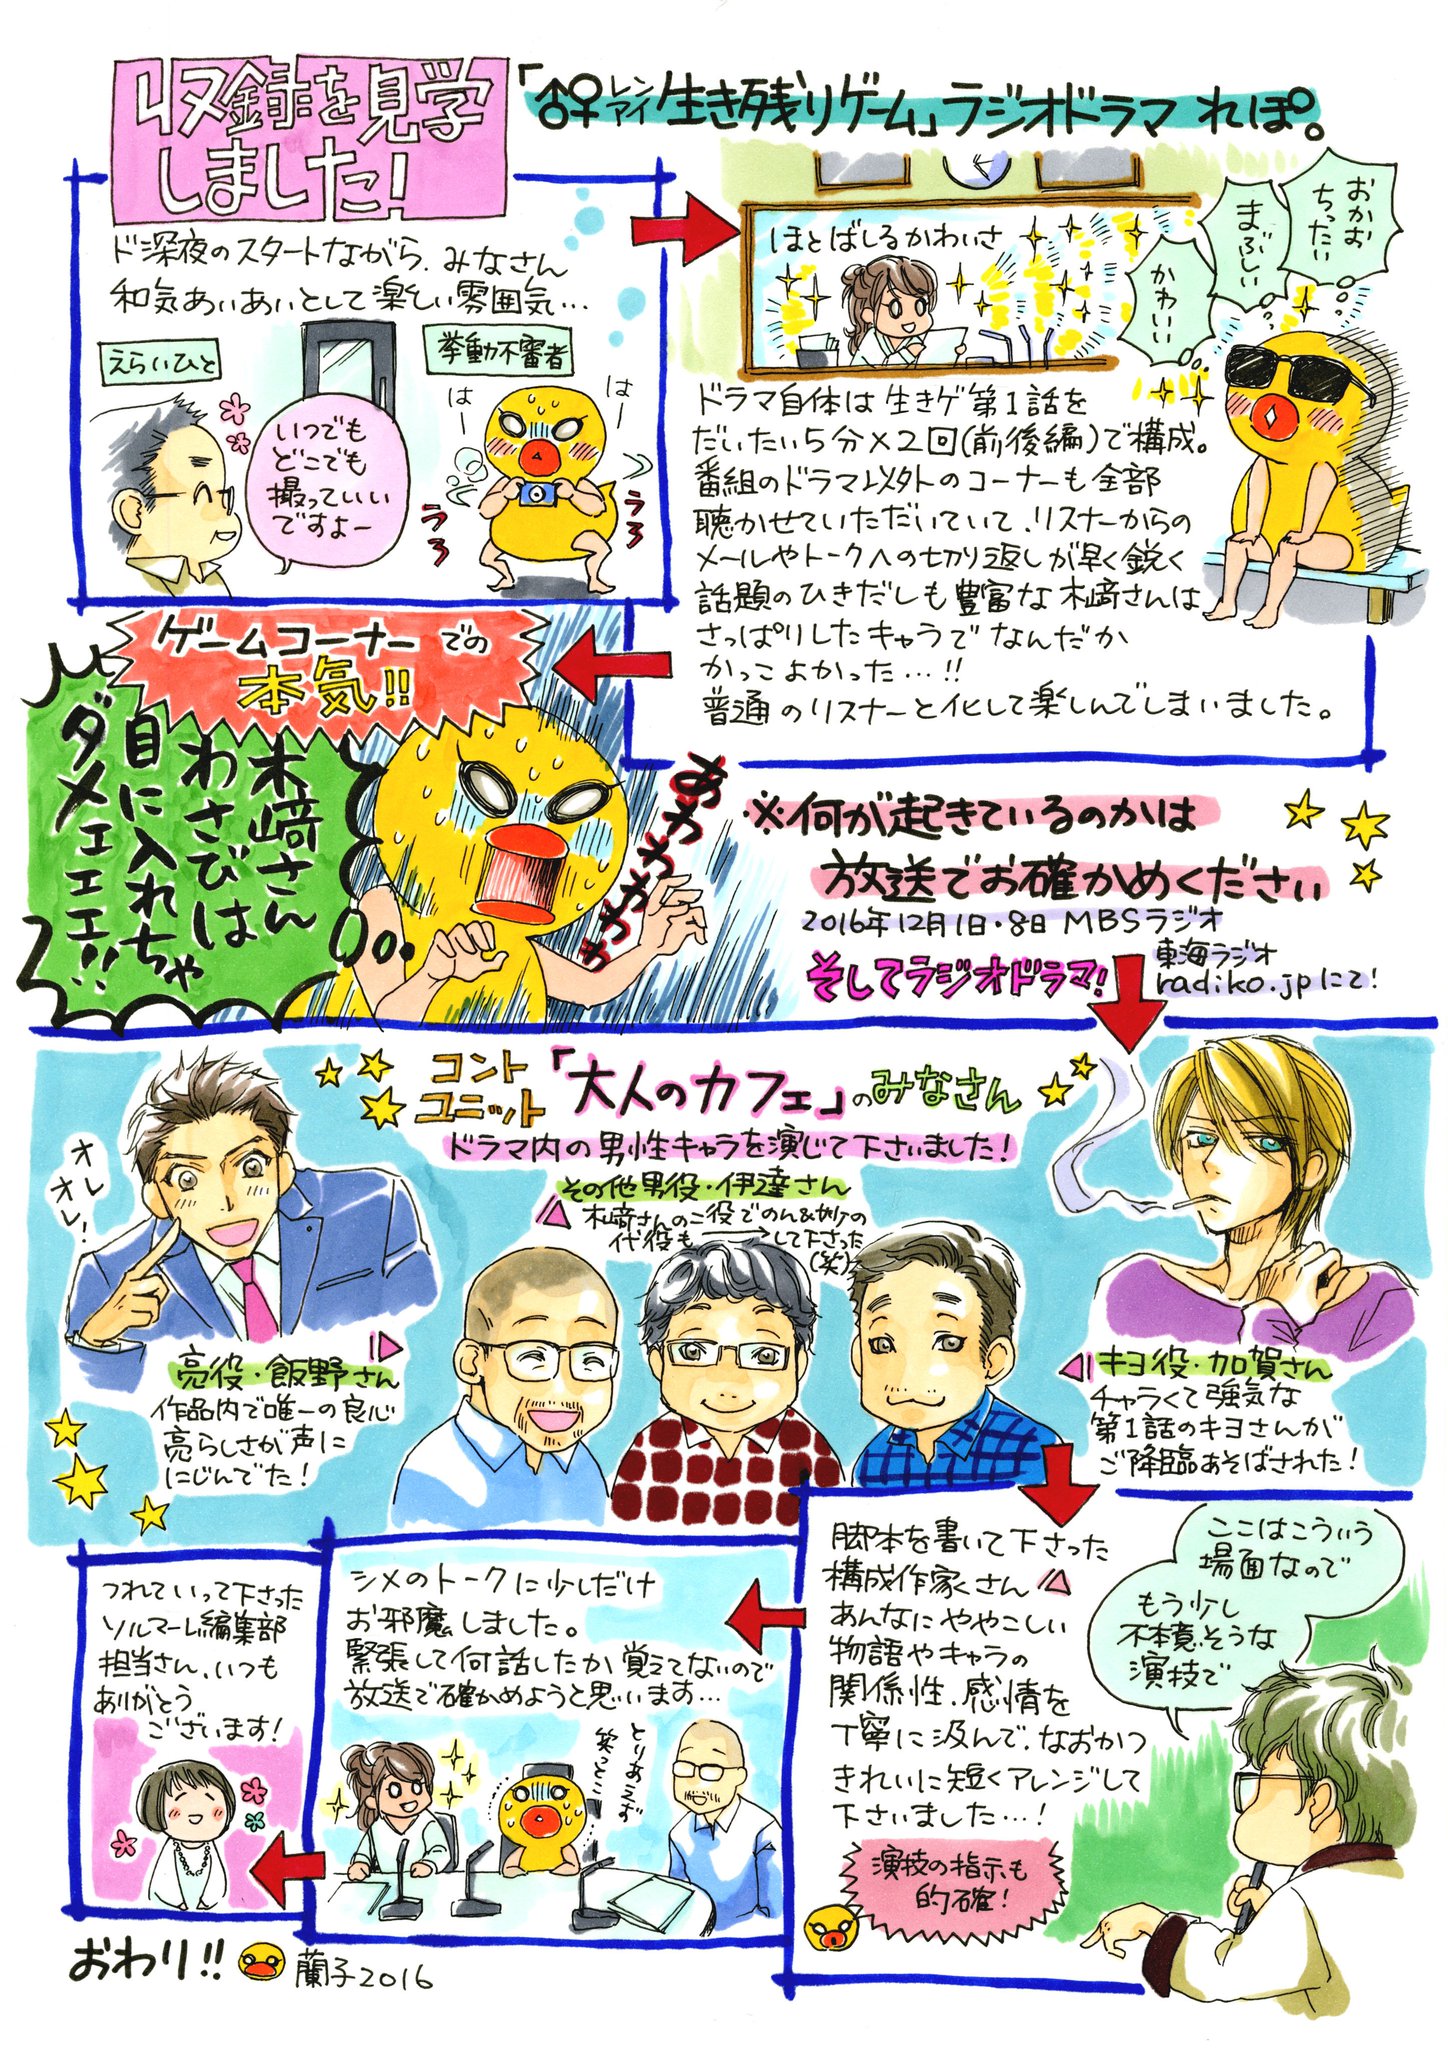 収録を見学
しました!
「♂♀レンアイ生き残りゲーム」ラジオドラマ れぽ。
ド深夜のスタートながら、みなさん
和気あいあいとして楽しい雰囲気…
えらいひと
いつでも
どこでも
撮っていい
ですよー
挙動不審者
はー
はー
うろ
うろ
ほとばしるかわいさ
おかお
ちったい
まぶしい
かわいい
ドラマ自体は生きゲ第1話を
だいたい5分×2回(前後編)で構成。
番組のドラマ以外のコーナーも全部
聴かせていただいていて、リスナーからの
メールやトークへの切り返しが早く鋭く
話題のひきだしも豊富な木﨑さんは
さっぱりしたキャラでなんだか
かっこよかった…!!
普通のリスナーと化して楽しんでしまいました。
ゲームコーナーでの
本気!!
木﨑さん
わさびは
目に入れちゃ
ダメェエエ!!
あわわわわわ
※何が起きているのかは
放送でお確かめください
2016年12月1日・8日 MBSラジオ
東海ラジオ
radiko.jpにて!
そしてラジオドラマ!
コント
ユニット
「大人のカフェ」のみなさん
ドラマ内の男性キャラを演じて下さいました!
その他男役・伊達さん
木﨑さんの二役でのん&妙の
代役も→して下さった
(笑)
オレ
オレ!
亮役・飯野さん
作品内で唯一の良心
亮らしさが声に
にじんでた!
キヨ役・加賀さん
チャラくて強気な
第1話のキヨさんが
ご降臨あそばされた!
脚本を書いて下さった
構成作家くさん
あんなにややこしい
物語やキャラの
関係性、感情を
丁寧に汲んで、なおかつ
きれいに短くアレンジして
下さいました…!
演技の指示も
的確!
ここはこういう
場面なので
もう少し
不本意そうな
演技で
シメのトークに少しだけ
お邪魔しました。
緊張して何話したか覚えてないので
放送で確かめようと思います…
とりあえず
笑っとこ
つれていって下さった
ソルマーレ編集部
担当さん、いつも
ありがとう
ございます!
おわり!!
蘭子2016